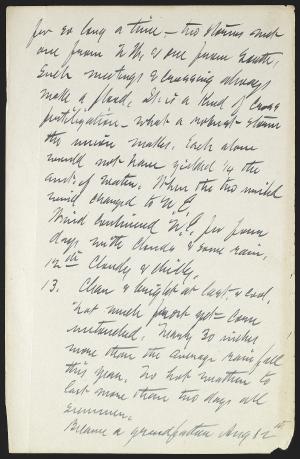 for so long a time — two storms met
one from N.W. & one from South.
Such meetings & crossing always
make a flood. It is a kind of cross
fertilization — what a robust storm
the union makes. Each alone
would not have yielded ¼ the
amt. of water. When the two united
wind changed to N.E.
Wind continued N.E. for four
days, with clouds & some rain.
12th Cloudy & chilly,
13. Clear & bright at last & cool,
not much frost yet — corn
untouched. Nearly 30 inches
more than the average rainfall
this year. No hot weather to
last more than two days all
summer.
Became a grandfather Aug 12th